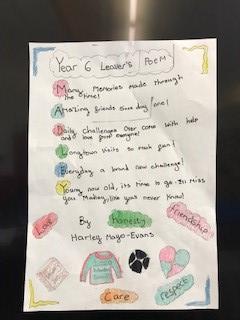 Year 6 Leaver's Poem
Many Memories made through
the time!
Amazing friends since day one!
Daily challenges over come with help
and love from everyone!
Longtown visits so much fun!
Everyday a brand new challenge!
Young now old, its time to go. I'll miss
you Madley, like you's never know!
Love
By
honesty
friendship
Harley Mayo-Evans
Care
respect